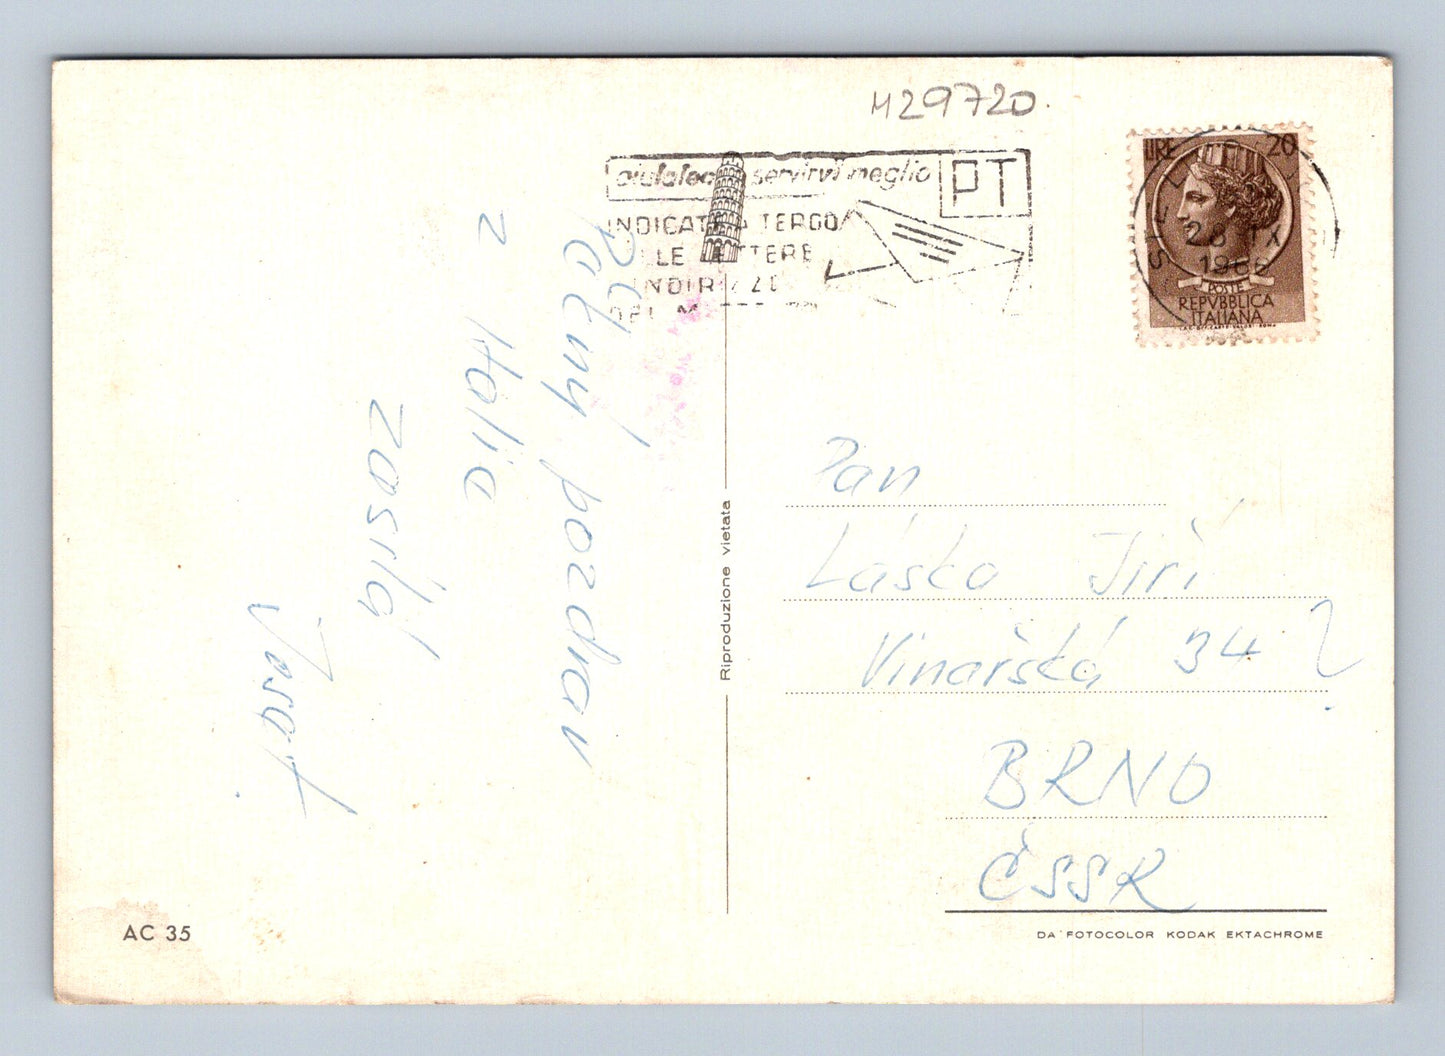 H29720.
aiutateci a servirvi meglio
PT
INDICATE A TERGO
LE LETTERE
INDIRIZZO
DEL M
LIRE 20
POSTE
REPVBBLICA
ITALIANA
1966
Pěkný pozdrav
z Italie
zasílá
Riproduzione vietata
Pan
Láska Jiří
Vinařská 34 ?
BRNO
ČSSR
AC 35
DA FOTOCOLOR KODAK EKTACHROME